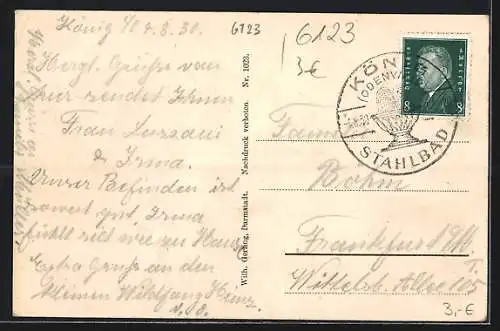 König 4.8.30.
6123
Hergl. Grüsse von
hier sendet Ihnen
Frau
& Irma.
Unser Befinden ist
soweit gut, Irma
fühlt sich wie zu Haus
Extra Gruss an den
kleinen Wolfgang Heinz
Wilh. Gerling, Darmstadt. Nachdruck verboten. Nr. 1023.
6123
3€
KÖNIG
(ODENWALD)
STAHLBAD
Deutsches Reich
8 8
Familie
Böhm
Frankfurt a/M.
Wittelsb. Allee
3,-€